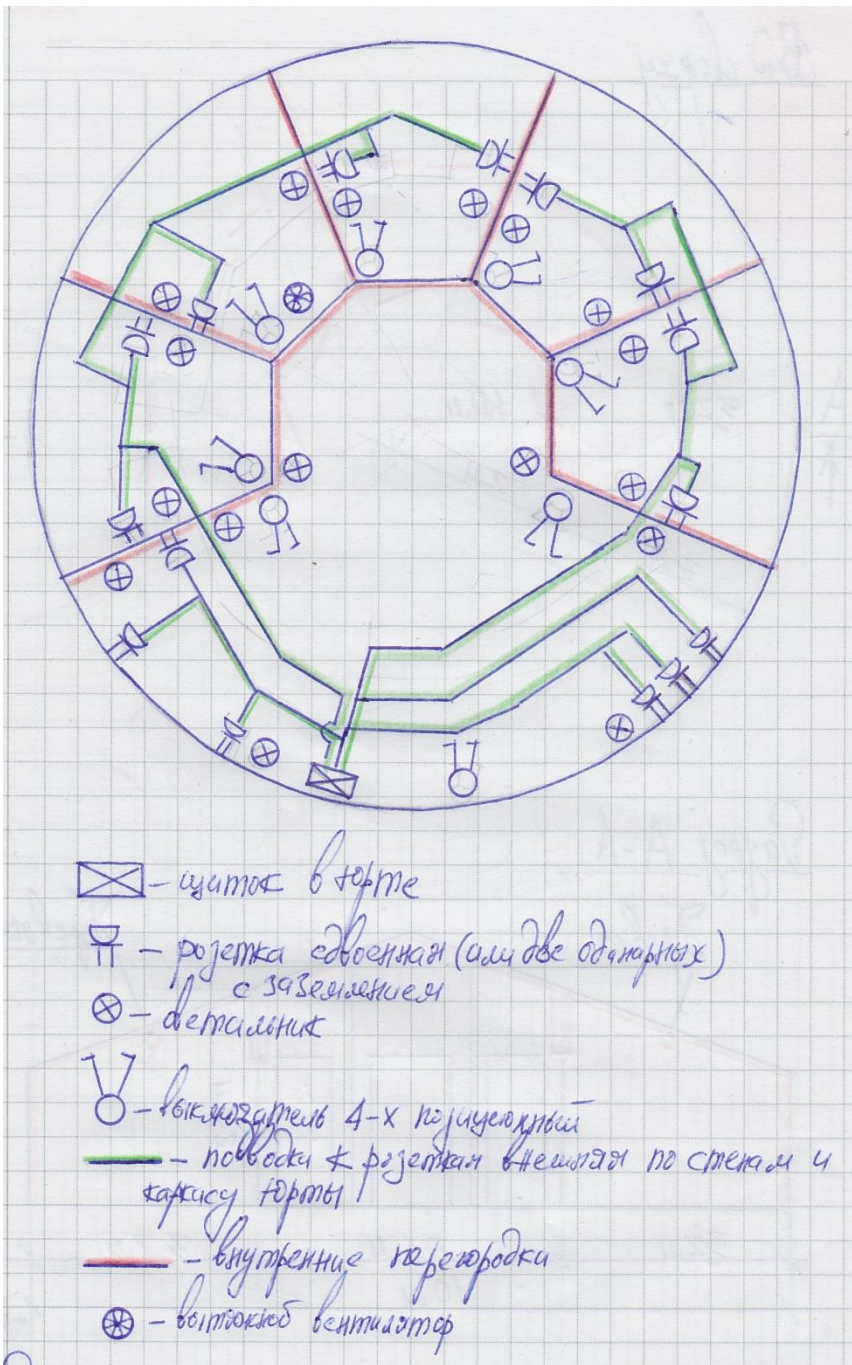 – щиток в юрте
– розетка сдвоенная (или две одинарных)
с заземлением
– светильник
– выключатель 4-х позиционный
– поводка к розеткам внешняя по стенам и
каркасу юрты
– внутренние перегородки
– вытяжной вентилятор